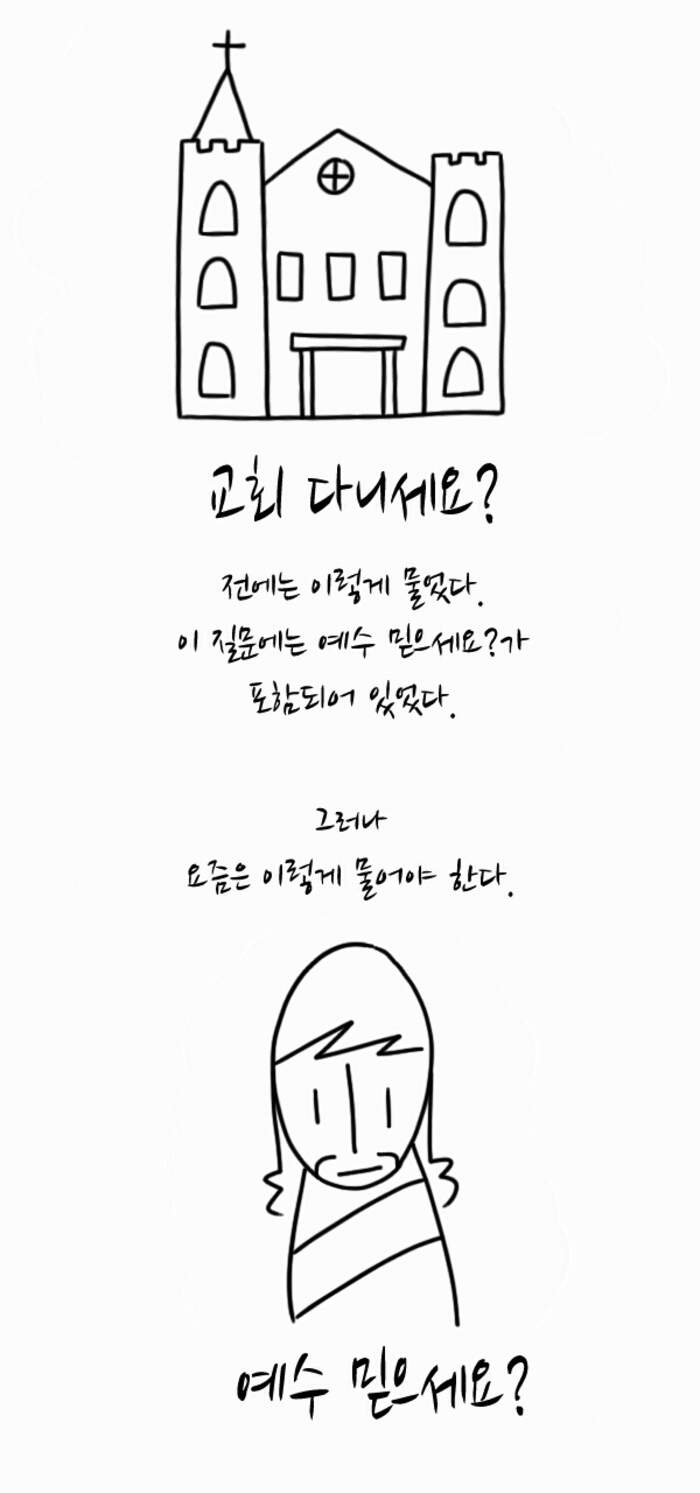 교회 다니세요?
전에는 이렇게 물었다.
이 질문에는 예수 믿으세요?가
포함되어 있었다.
그러나
요즘은 이렇게 물어야 한다.
예수 믿으세요?